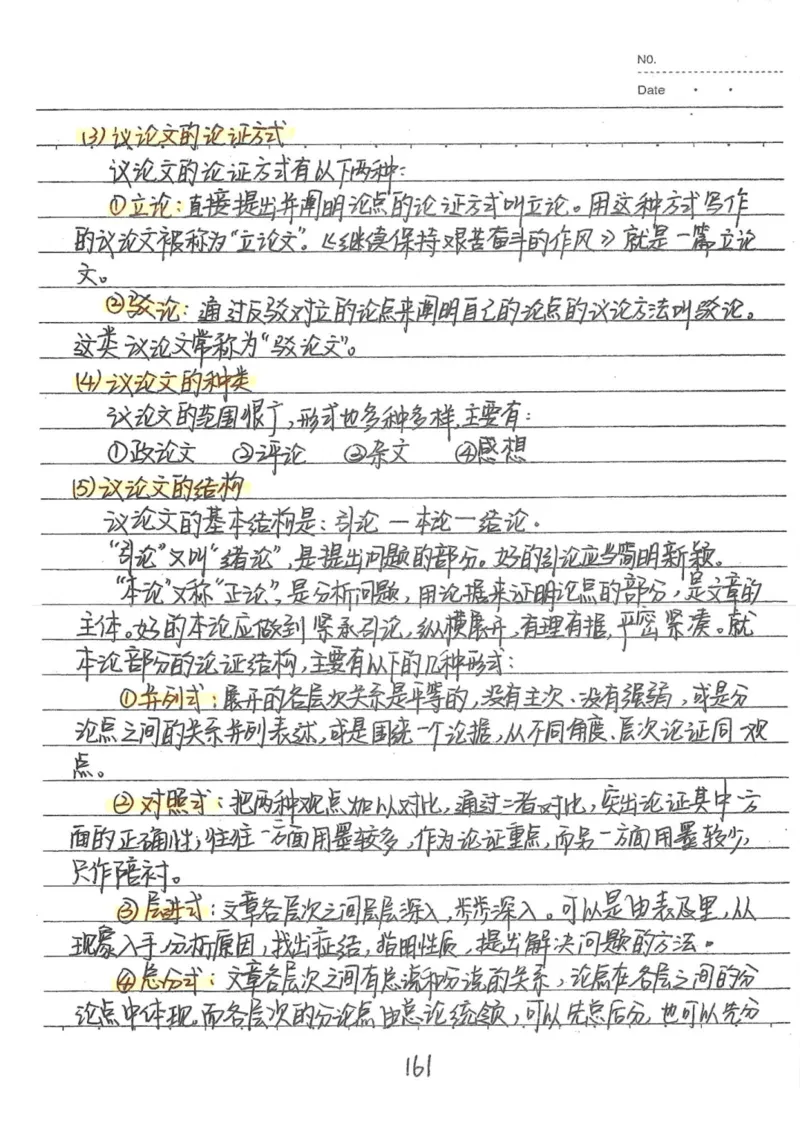 NO.
Date
(3) 议论文的论证方式
议论文的论证方式有以下两种：
①立论：直接提出并阐明论点的论证方式叫立论。用这种方式写作
的议论文被称为“立论文”。《继续保持艰苦奋斗的作风》就是一篇立论
文。
②驳论：通过反驳对立的论点来阐明自己的论点的议论方法叫驳论。
这类议论文常称为“驳论文”。
(4) 议论文的种类
议论文的范围很广，形式也多种多样，主要有：
①政论文 ②评论 ③杂文 ④感想
(5) 议论文的结构
议论文的基本结构是：引论—本论—结论。
“引论”又叫“绪论”，是提出问题的部分。好的引论应当简明新颖。
“本论”又称“正论”，是分析问题，用论据来证明论点的部分，是文章的
主体。好的本论应做到紧承引论，纵横展开，有理有据，严密紧凑。就
本论部分的论证结构，主要有以下的几种形式：
①并列式：展开的各层次关系是平等的，没有主次、没有强弱，或是分
论点之间的关系并列表述，或是围绕一个论据，从不同角度、层次论证同一观
点。
②对照式：把两种观点加以对比，通过二者对比，突出论证其中一方
面的正确性；往往一方面用墨较多，作为论证重点，而另一方面用墨较少，
只作陪衬。
③层进式：文章各层次之间层层深入，步步深入。可以是由表及里，从
现象入手，分析原因，找出症结，指明性质，提出解决问题的方法。
④总分式：文章各层次之间有总说和分说的关系，论点在各层之间的分
论点中体现，而各层次的分论点由总论统领，可以先总后分，也可以先分
161